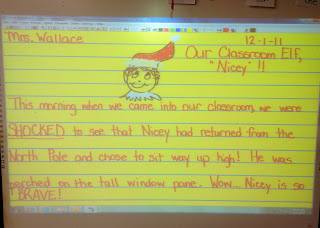 Mrs. Wallace
12-1-11
Our Classroom Elf,
"Nicey"!!
This morning when we came into our classroom, we were
SHOCKED to see that Nicey had returned from the
North Pole and chose to sit way up high! He was
perched on the tall window pane. Wow... Nicey is so
BRAVE!